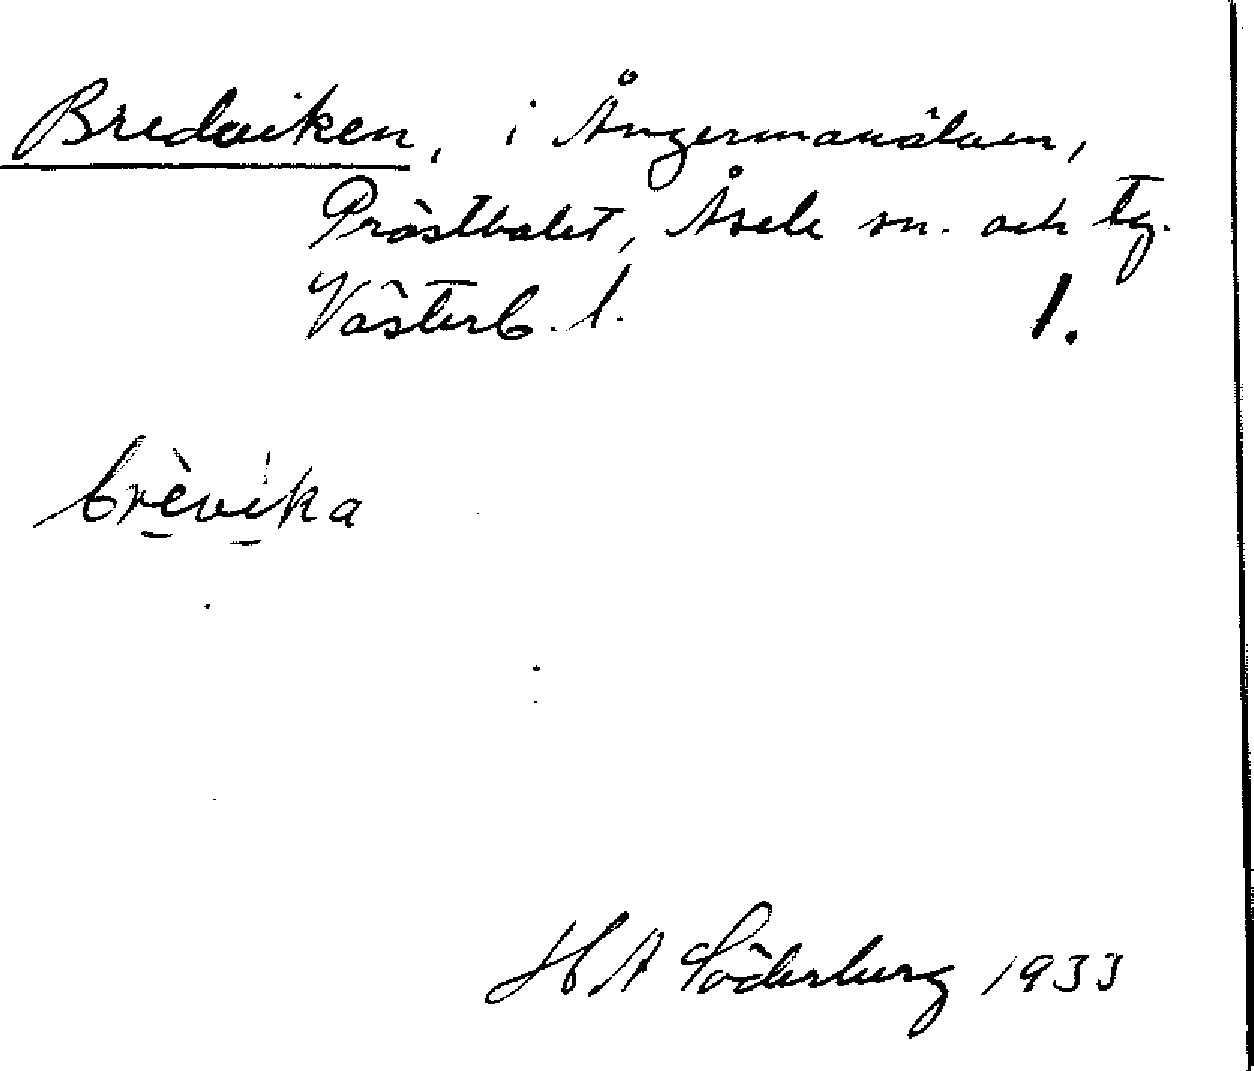 Bredviken, i Ångermanälven,
Prästbolet, Åsele sn. och tg.
Västerb. l. 1.
brèvíka
H A Söderberg 1933